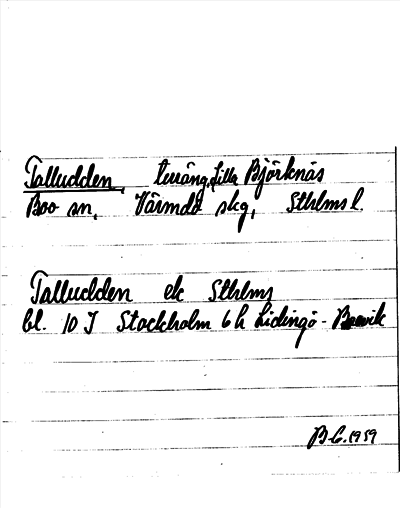 Talludden, terräng, Lilla Björknäs
Boo sn, Värmdö skg, Sthlms l.
Talludden ek Sthlms
bl. 10 I Stockholm 6 h Lidingö - Boovik
B G. 1959